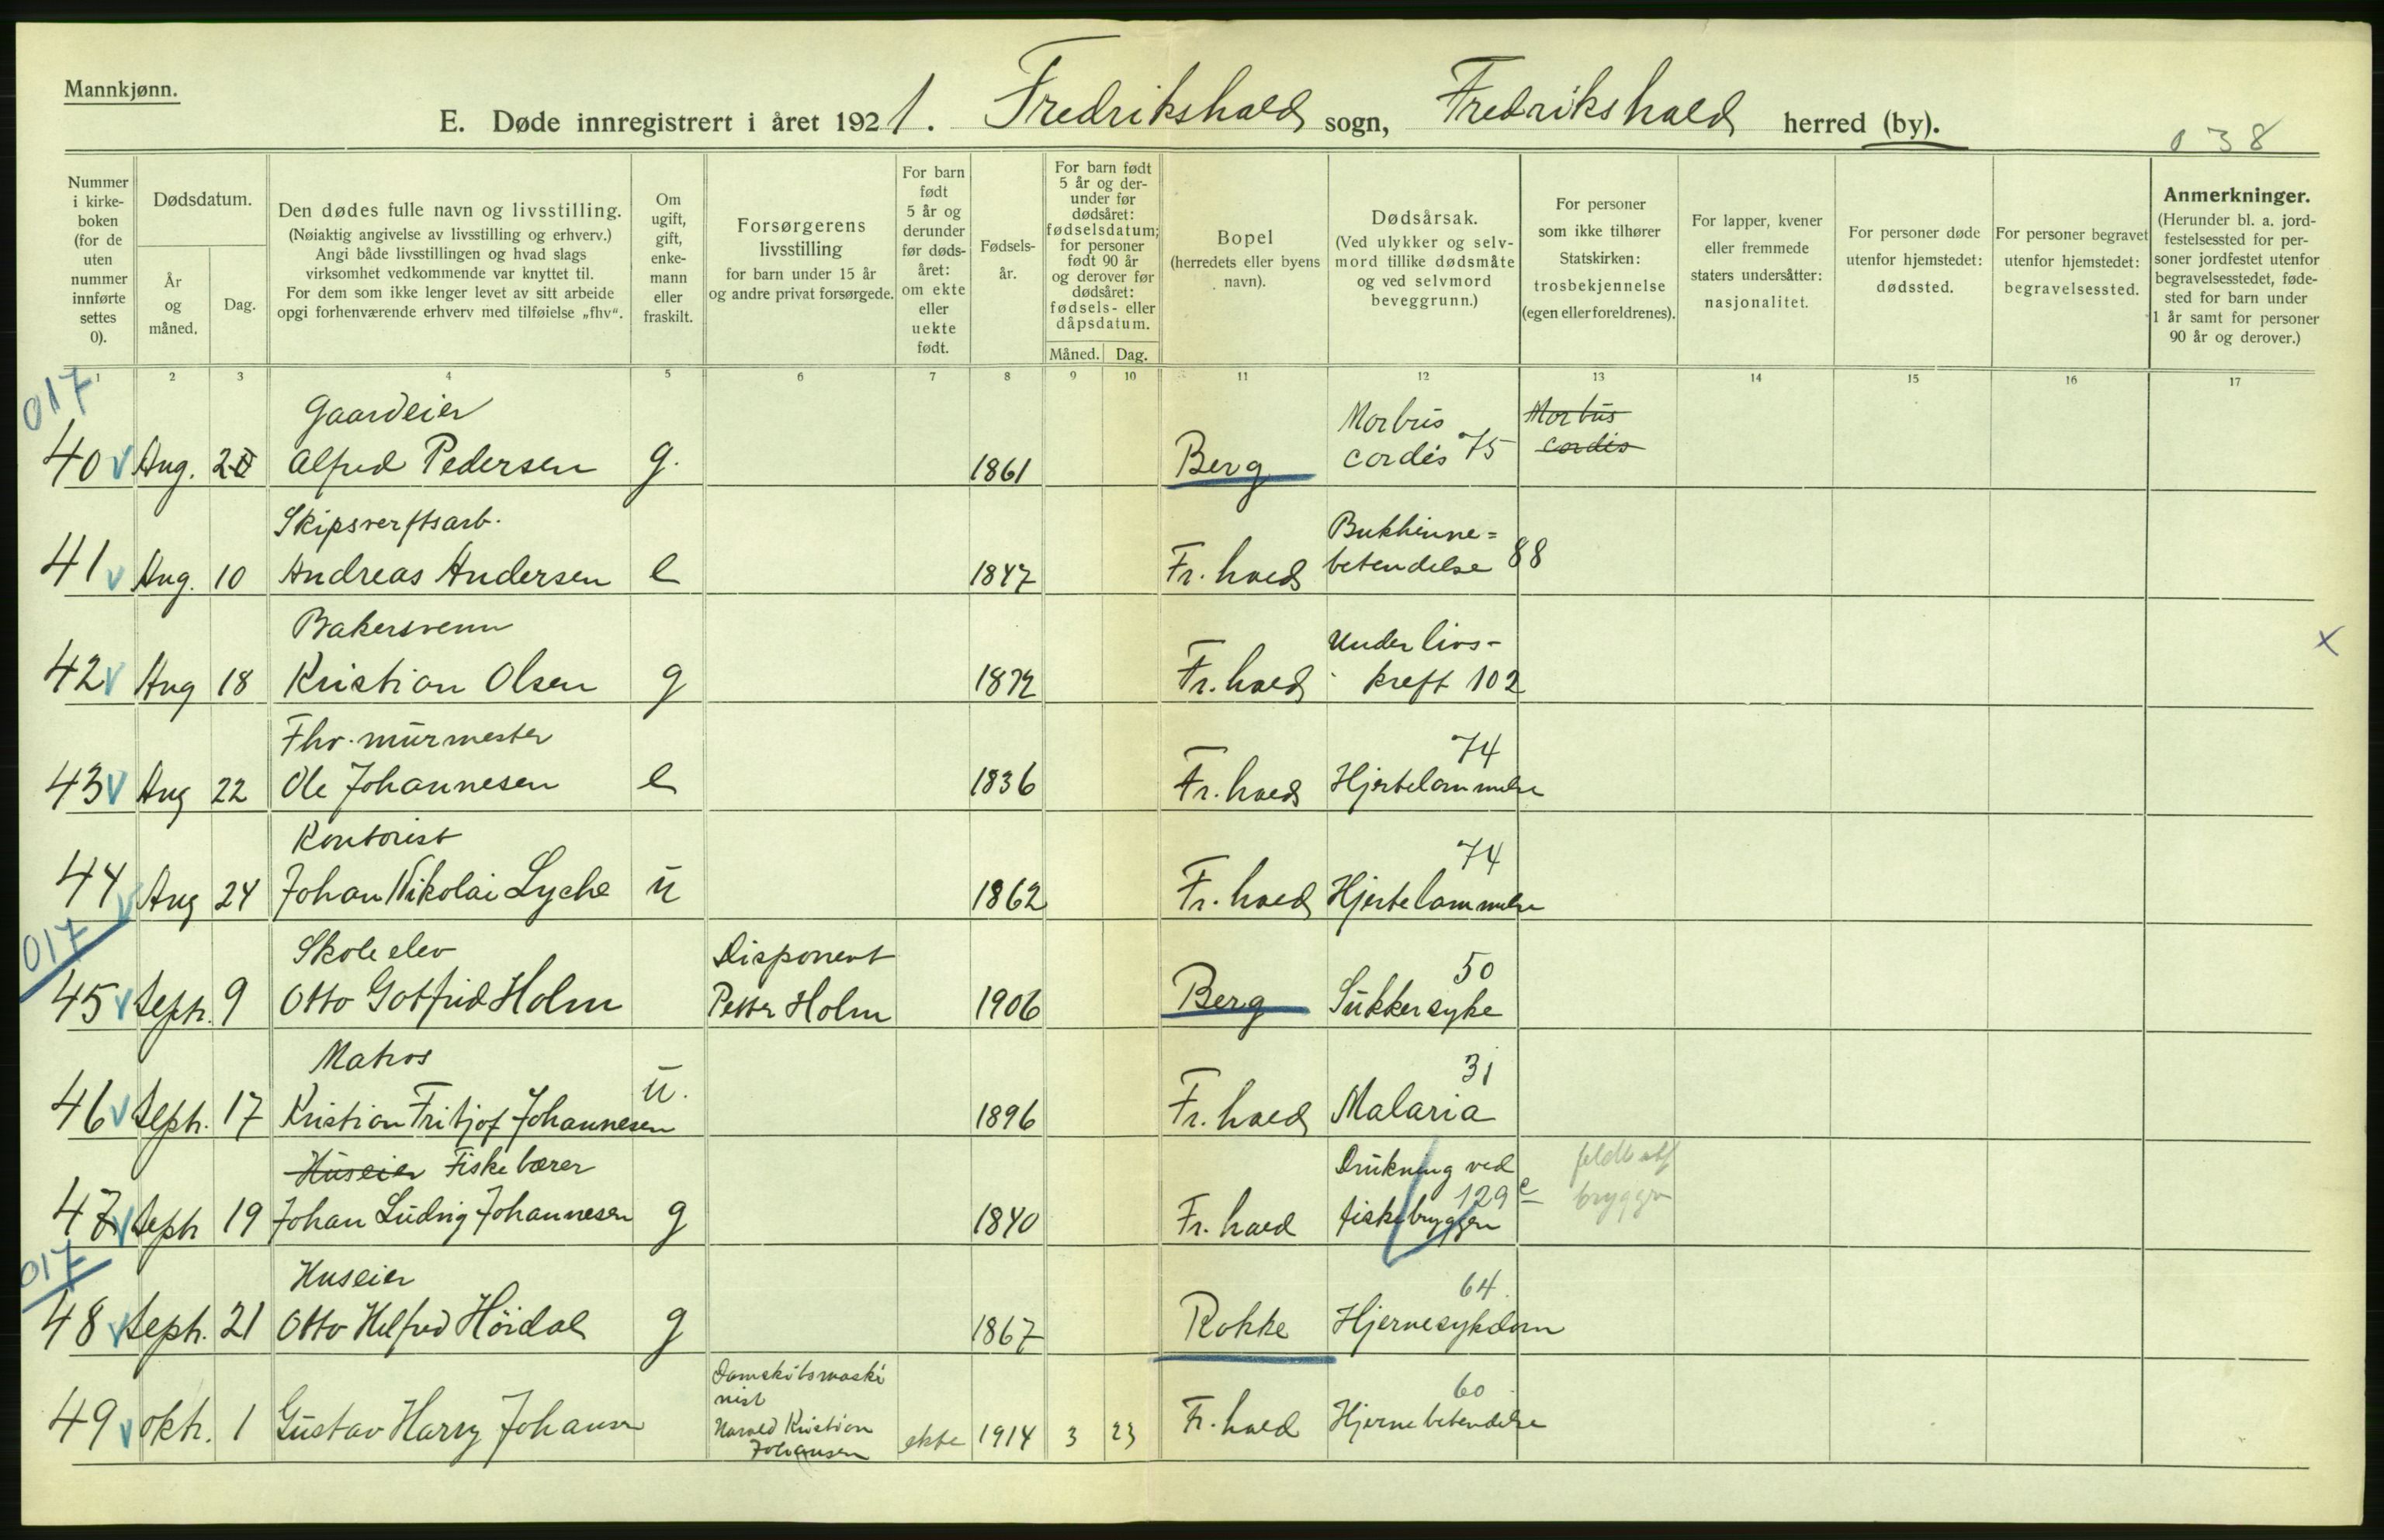 Mannkjønn.
E. Døde innregistrert i året 1921. Fredrikshald sogn, Fredrikshald herred (by).
038
Nummer i kirke-boken (for de uten nummer innførte settes 0).
Dødsdatum.
År og måned.
Dag.
Den dødes fulle navn og livsstilling.
(Nøiaktig angivelse av livsstilling og erhverv.)
Angi både livsstillingen og hvad slags
virksomhet vedkommende var knyttet til.
For dem som ikke lenger levet av sitt arbeide
opgi forhenværende erhverv med tilføielse „fhv“.
Om ugift, gift, enke-mann eller fraskilt.
Forsørgerens livsstilling
for barn under 15 år
og andre privat forsørgede.
For barn født 5 år og derunder før døds-året: om ekte eller uekte født.
Fødsels-år.
For barn født 5 år og der-under før dødsåret: fødselsdatum; for personer født 90 år og derover før dødsåret: fødsels- eller dåpsdatum.
Måned. Dag.
Bopel
(herredets eller byens navn).
Dødsårsak.
(Ved ulykker og selv-mord tillike dødsmåte og ved selvmord beveggrunn.)
For personer som ikke tilhører Statskirken: trosbekjennelse (egen eller foreldrenes).
For lapper, kvener eller fremmede staters undersåtter: nasjonalitet.
For personer døde utenfor hjemstedet: dødssted.
For personer begravet utenfor hjemstedet: begravelsessted.
Anmerkninger.
(Herunder bl. a. jord-festelsessted for per-soner jordfestet utenfor begravelsesstedet, føde-sted for barn under 1 år samt for personer 90 år og derover.)
1 2 3 4 5 6 7 8 9 10 11 12 13 14 15 16 17
017
Gaardeier Morbus Morbus
40 Aug. Alfred Pedersen g. 1861 Berg cordis 75 cordis
Skipsverftsarb. Bukhinne=
41 Aug. 10 Andreas Andersen e 1847 Fr. hald betendelse 88
Bakersvenn Underlivs-
42 Aug 18 Kristian Olsen g 1872 Fr. hald kreft 102
x
Fhv. murmester 74
43 Aug 22 Ole Johannesen e 1836 Fr. hald Hjertelammelse
Kontorist 74
44 Aug 24 Johan Nikolai Lyche u 1862 Fr. hald Hjertelammelse
017
Skoleelev Disponent 50
45 Sept. 9 Otto Gotfred Holm Petter Holm 1906 Berg Sukkersyke
Matros 31
46 Sept. 17 Kristian Fritjof Johannesen u. 1896 Fr. hald Malaria
Huseier Fiskebærer Drukning ved 129
47 Sept 19 Johan Ludvig Johannesen g 1840 Fr. hald fiskebryggen
bryggen
017
Huseier 64
48 Sept. 21 Otto Helfred Höidal g 1867 Rokke Hjernesykdom
Damskibsmaski
nist 60
49 okt. 1 Gustav Harry Johansen Harald Kristian ekte 1914 3 23 Fr. hald Hjernebetendelse
Johansen